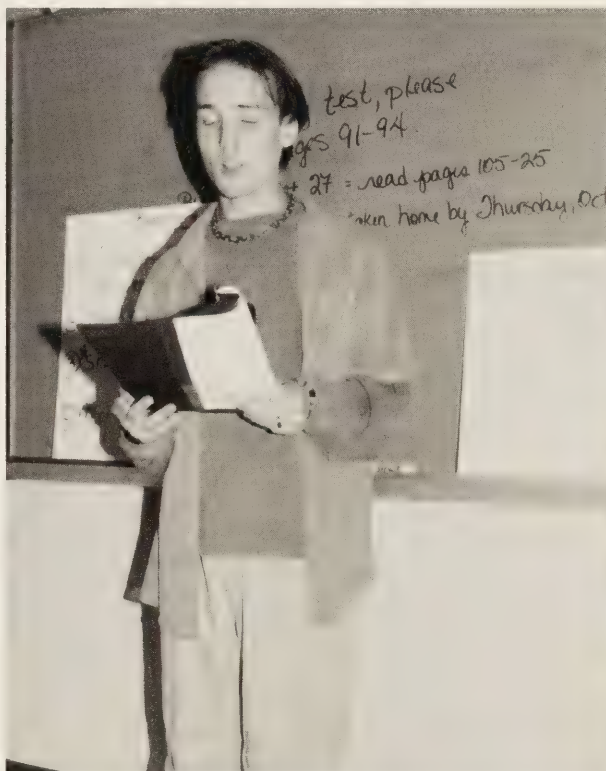 test, please
ges 91-94
+ 27 = read pages 105-25
oken home by Thursday, Oct